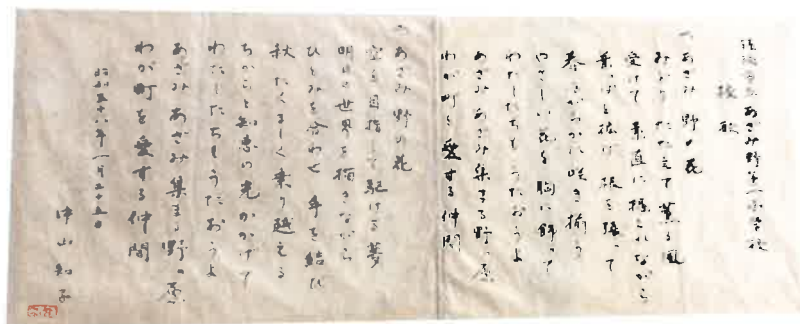 横浜市立あざみ野第一小学校
校歌
一、あざみ野の花
みどり たたえて 薫る風
受けて 素直に 揺れながら
葉っぱを拡げ 根を張って
春 さわやかに 咲き揃う
やさしい花を 胸に飾って
わたしたちも うたおうよ
あざみ あざみ 集まる野っ原
わが町を 愛する仲間
二、あざみ野の花
空を目指して 駆ける夢
明日の世界を 描きながら
ひとみを合わせ 手を結び
秋 たくましく 乗り越える
ちからと知恵の 光かかげて
わたしたちも うたおうよ
あざみ あざみ 集まる野っ原
わが町を 愛する仲間
昭和五十八年一月二十五日
中山知子